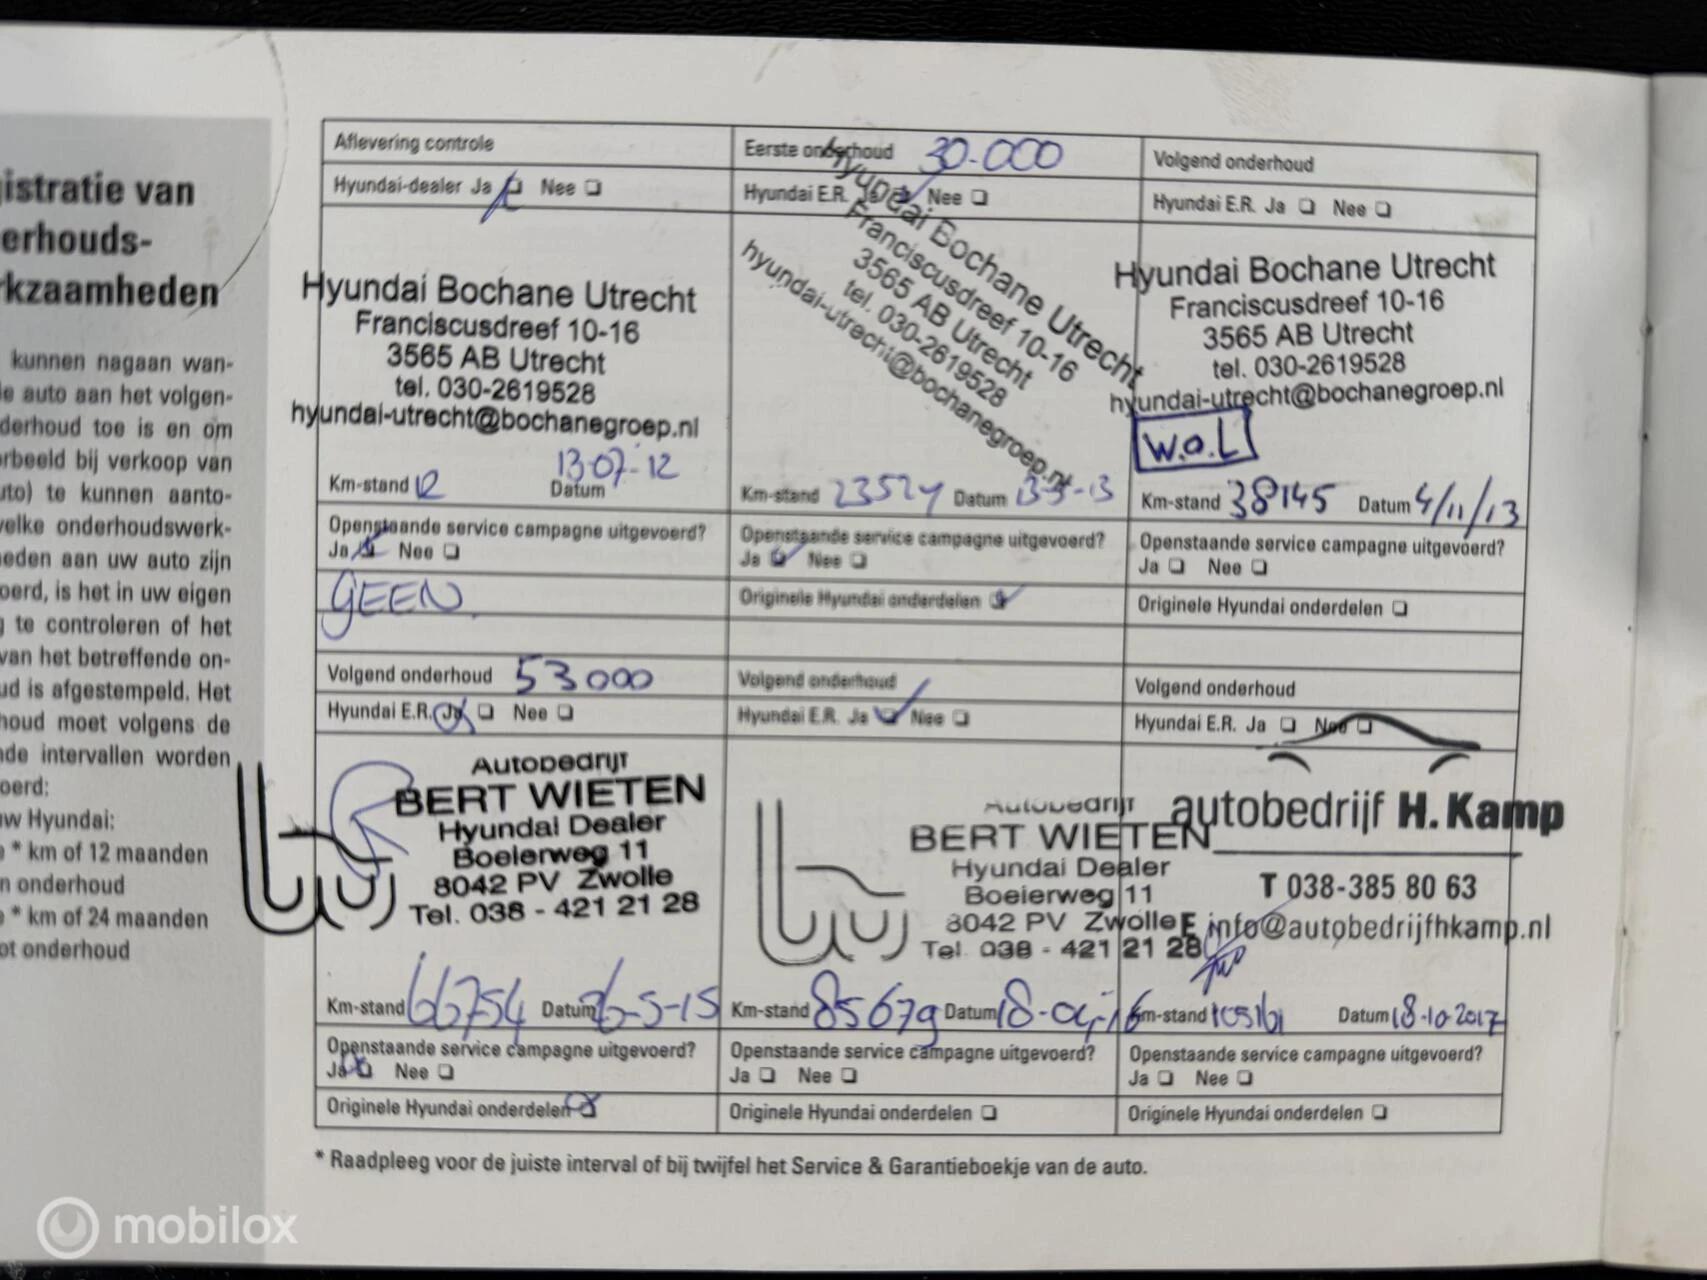 istratie van
erhouds-
kzaamheden
kunnen nagaan wan-
le auto aan het volgen-
derhoud toe is en om
rbeeld bij verkoop van
uto) te kunnen aanto-
welke onderhoudswerk-
heden aan uw auto zijn
oerd, is het in uw eigen
g te controleren of het
van het betreffende on-
ud is afgestempeld. Het
houd moet volgens de
nde intervallen worden
oerd:
uw Hyundai:
* km of 12 maanden
n onderhoud
* km of 24 maanden
ot onderhoud
Aflevering controle
Hyundai-dealer Ja Nee
Hyundai Bochane Utrecht
Franciscusdreef 10-16
3565 AB Utrecht
tel. 030-2619528
hyundai-utrecht@bochanegroep.nl
Km-stand 12 Datum 13-07-12
Openstaande service campagne uitgevoerd?
Ja Nee
GEEN
Eerste onderhoud 30.000
Hyundai E.R. Ja Nee
Hyundai Bochane Utrecht
Franciscusdreef 10-16
3565 AB Utrecht
tel. 030-2619528
hyundai-utrecht@bochanegroep.nl
Km-stand Datum
Openstaande service campagne uitgevoerd?
Ja Nee
Originele Hyundai onderdelen
Volgend onderhoud
Hyundai E.R. Ja Nee
Hyundai Bochane Utrecht
Franciscusdreef 10-16
3565 AB Utrecht
tel. 030-2619528
hyundai-utrecht@bochanegroep.nl
W.O.L
Km-stand 38145 Datum 4/11/13
Openstaande service campagne uitgevoerd?
Ja Nee
Originele Hyundai onderdelen
Volgend onderhoud 53000
Hyundai E.R. Ja Nee
Autobedrijf
BERT WIETEN
Hyundai Dealer
Boeierweg 11
8042 PV Zwolle
Tel. 038 - 421 21 28
Km-stand 66754 Datum 26-5-15
Openstaande service campagne uitgevoerd?
Ja Nee
Originele Hyundai onderdelen
Volgend onderhoud
Hyundai E.R. Ja Nee
Autobedrijf
BERT WIETEN
Hyundai Dealer
Boeierweg 11
8042 PV Zwolle
Tel. 038 - 421 21 28
Km-stand 85679 Datum 18-04-16
Openstaande service campagne uitgevoerd?
Ja Nee
Originele Hyundai onderdelen
Volgend onderhoud
Hyundai E.R. Ja Nee
autobedrijf H. Kamp
T 038-385 80 63
E info@autobedrijfhkamp.nl
Km-stand 105161 Datum 18-10-2017
Openstaande service campagne uitgevoerd?
Ja Nee
Originele Hyundai onderdelen
* Raadpleeg voor de juiste interval of bij twijfel het Service & Garantieboekje van de auto.
mobilox